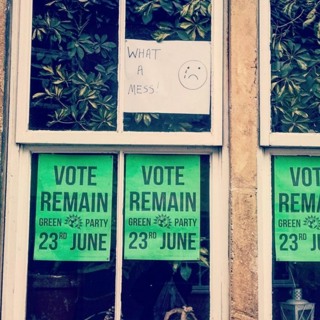 WHAT
A
MESS!
VOTE
REMAIN
GREEN PARTY
23RD JUNE
VOTE
REMAIN
GREEN PARTY
23RD JUNE
VOT
REMA
GREEN
23RD JU